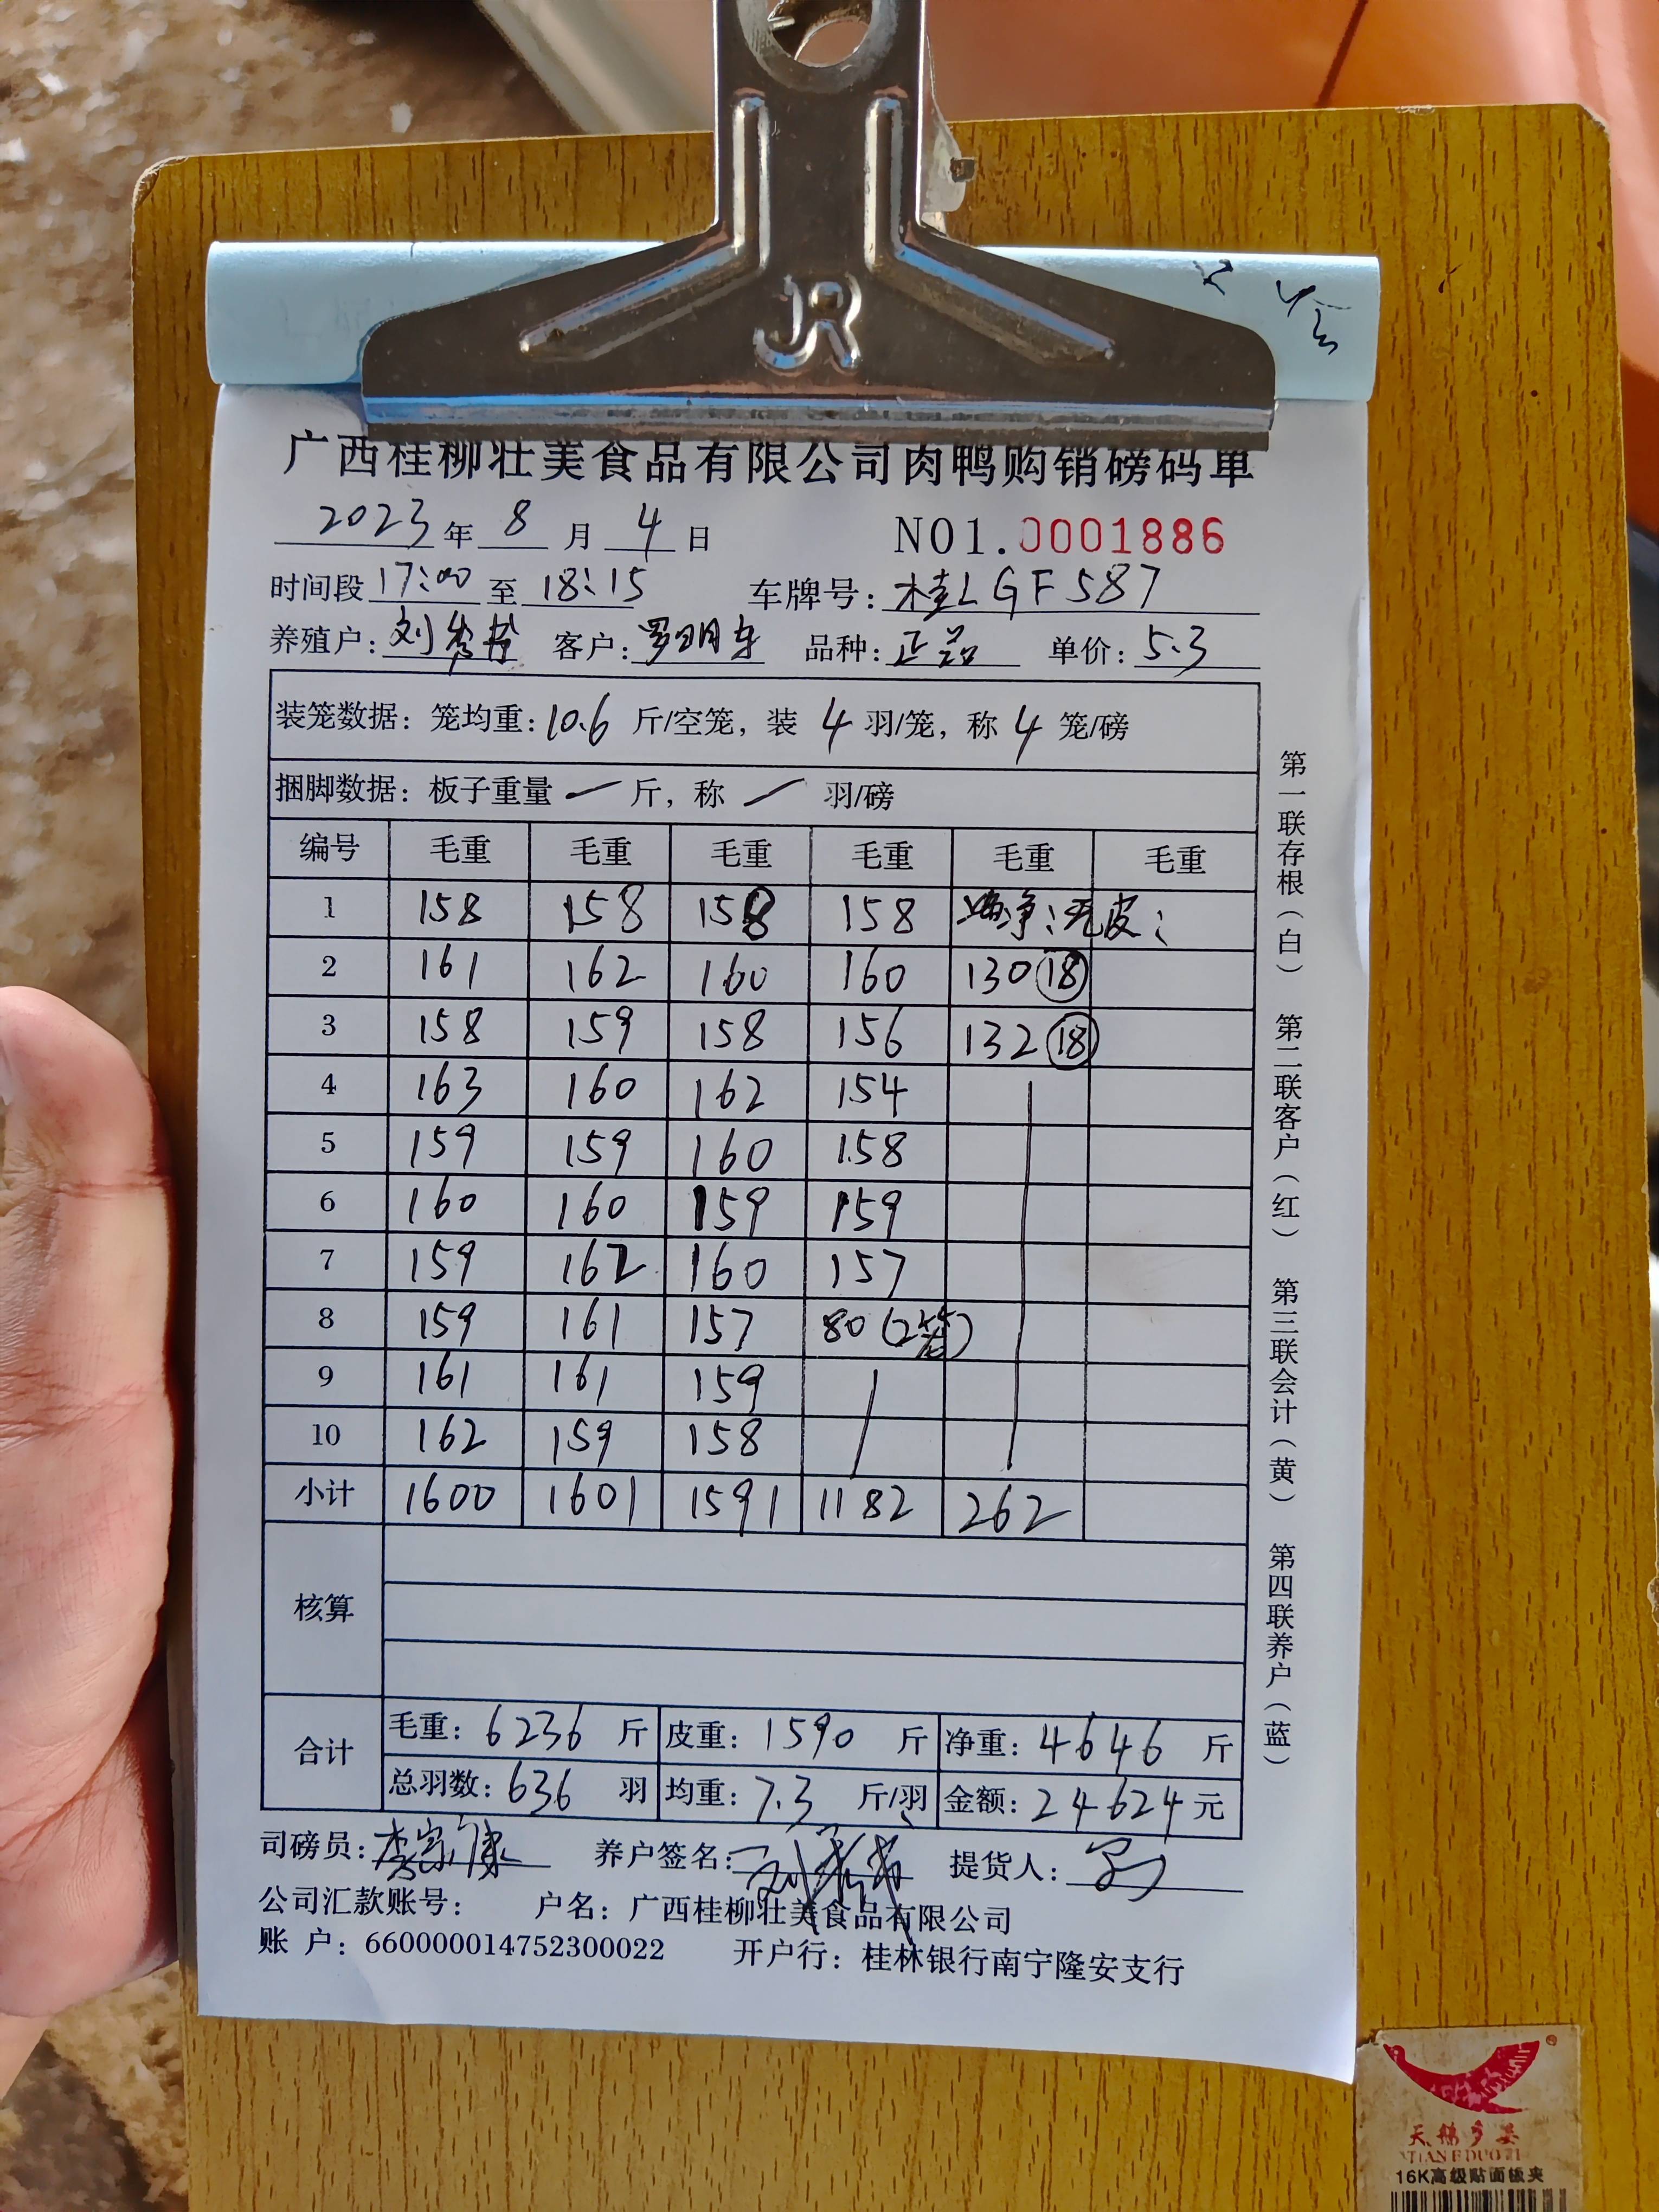 JR
广西桂柳壮美食品有限公司肉鸭购销磅码单
2023年 8 月 4 日 NO1.0001886
时间段 17:00 至 18:15 车牌号: 桂LGF587
养殖户: 刘 客户: 罗明东 品种: 正品 单价: 5.3
装笼数据: 笼均重: 10.6 斤/空笼, 装 4 羽/笼, 称 4 笼/磅
捆脚数据: 板子重量 — 斤, 称 — 羽/磅
编号 毛重 毛重 毛重 毛重 毛重 毛重
1 158 158 158 158 净: 无皮:
2 161 162 160 160 130 18
3 158 159 158 156 132 18
4 163 160 162 154
5 159 159 160 158
6 160 160 159 159
7 159 162 160 157
8 159 161 157 80 (2笼)
9 161 161 159
10 162 159 158
小计 1600 1601 1591 1182 262
核算
合计 毛重: 6236 斤 皮重: 1590 斤 净重: 4646 斤
总羽数: 636 羽 均重: 7.3 斤/羽 金额: 24624 元
司磅员: 李家康 养户签名: 提货人:
公司汇款账号: 户名: 广西桂柳壮美食品有限公司
账 户: 660000014752300022 开户行: 桂林银行南宁隆安支行
第一联存根(白) 第二联客户(红) 第三联会计(黄) 第四联养户(蓝)
TIANEDUOZI
16K高级贴面板夹